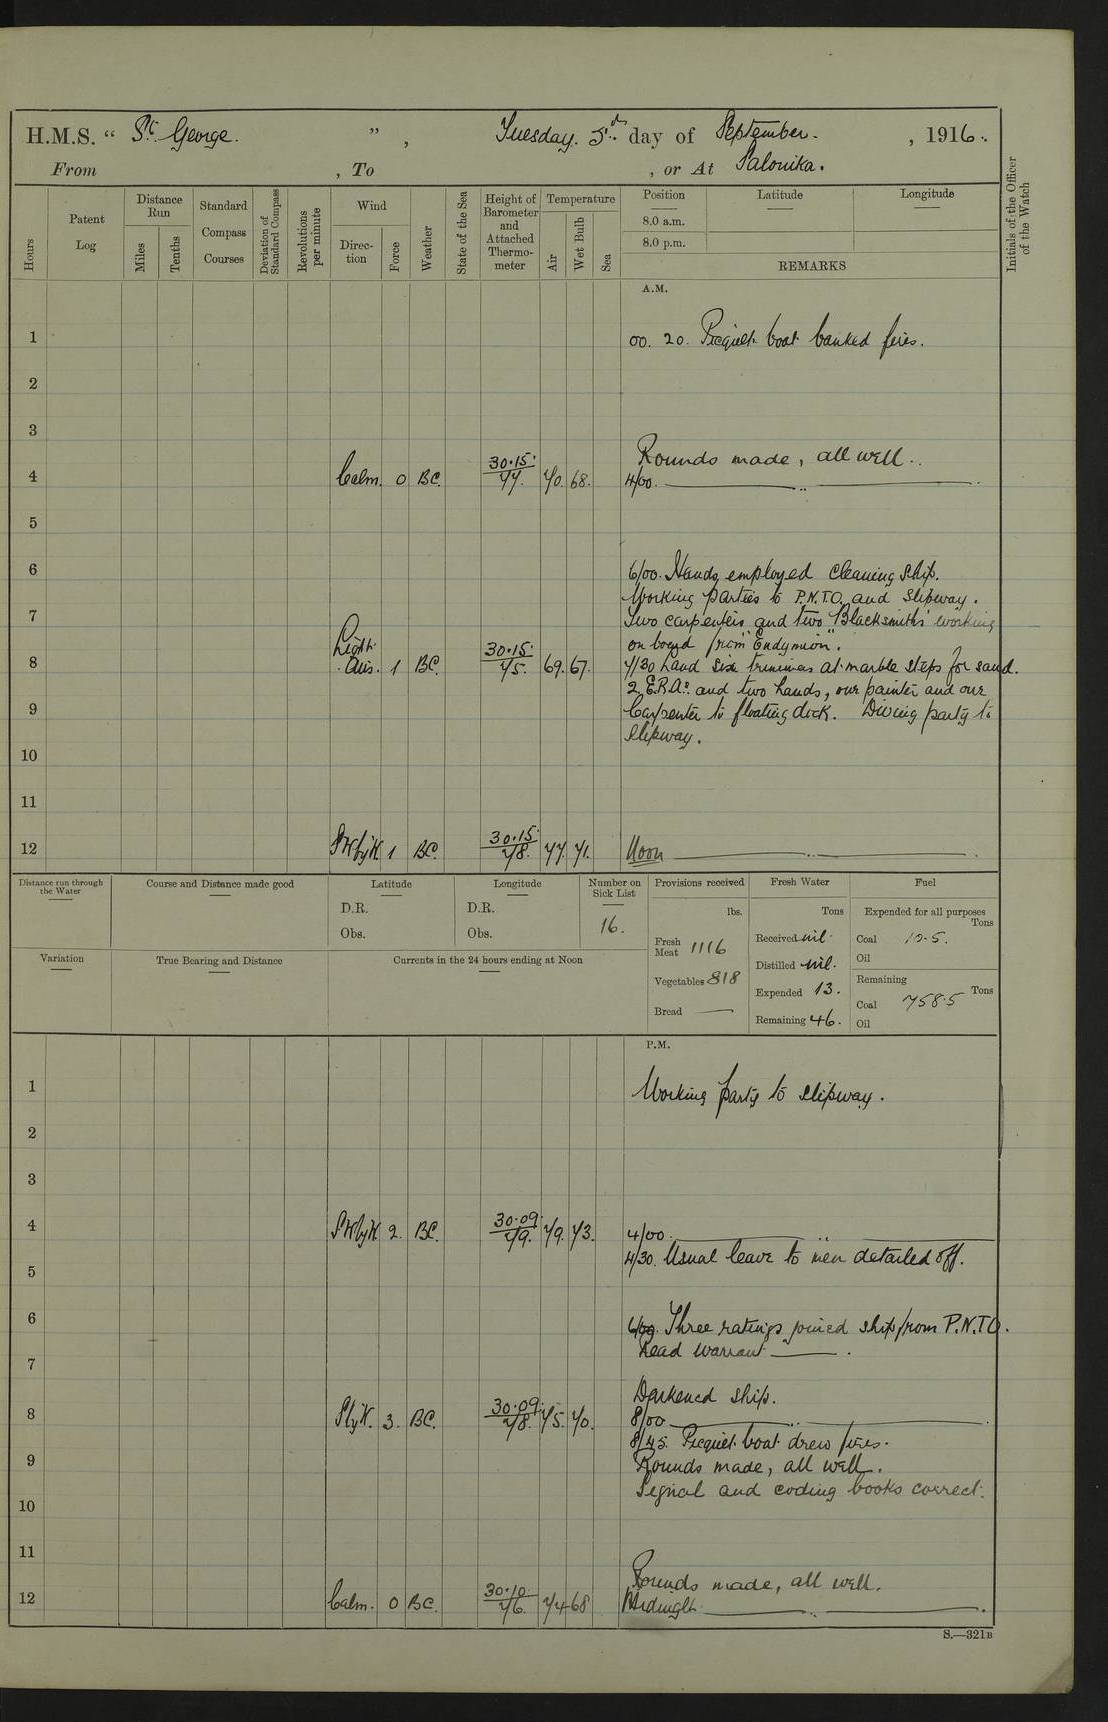 H.M.S. " St. George. ", Tuesday. 5th day of September. , 1916.
From , To , or At Salonika.
Initials of the Officer of the Watch
Hours
Patent Log
Distance Run
Miles
Tenths
Standard Compass Courses
Deviation of Standard Compass
Revolutions per minute
Wind
Direction
Force
Weather
State of the Sea
Height of Barometer and Attached Thermometer
Temperature
Air
Wet Bulb
Sea
Position
Latitude
Longitude
8.0 a.m.
8.0 p.m.
REMARKS
A.M.
1 00. 20. Picquet boat banked fires.
2
3
Rounds made, all well.
4 Calm. 0 BC. 30.15/77. 70. 68. 4/00.
5
6 6/00. Hands employed cleaning ship.
Working parties to P.N.T.O. and Slipway.
7 Two carpenters and two Blacksmiths working
on board from "Endymion".
8 Light Airs. 1 BC. 30.15/75. 69. 67. 7/30 Land six trimmers at marble steps for sand.
2 E.R.A's. and two hands, our painter and our
9 Carpenter to floating dock. Diving party to
Slipway.
10
11
12 SWbyW. 1 BC. 30.15/78. 77. 71. Noon
Distance run through the Water
Course and Distance made good
Latitude
D.R.
Obs.
Longitude
D.R.
Obs.
Number on Sick List
16.
Provisions received
lbs.
Fresh Meat 1116
Vegetables 818
Bread —
Fresh Water
Tons
Received nil.
Distilled nil.
Expended 13.
Remaining 46.
Fuel
Expended for all purposes
Tons
Coal 12.5.
Oil
Remaining
Tons
Coal 758.5
Oil
Variation
True Bearing and Distance
Currents in the 24 hours ending at Noon
P.M.
1 Working party to slipway.
2
3
4 SWbyW. 2. BC. 30.09./79. 79. 73. 4/00.
4/30. Usual leave to men detailed off.
5
6 6/00. Three ratings joined ship from P.N.T.O.
7 Read warrant
Darkened ship.
8 SbyW. 3. BC. 30.09./78. 75. 70. 8/00
8/45. Picquet boat drew fires.
9 Rounds made, all well.
Signal and coding books correct.
10
11
Rounds made, all well.
12 Calm. 0 BC. 30.10./76. 74 68 Midnight
S.—321B